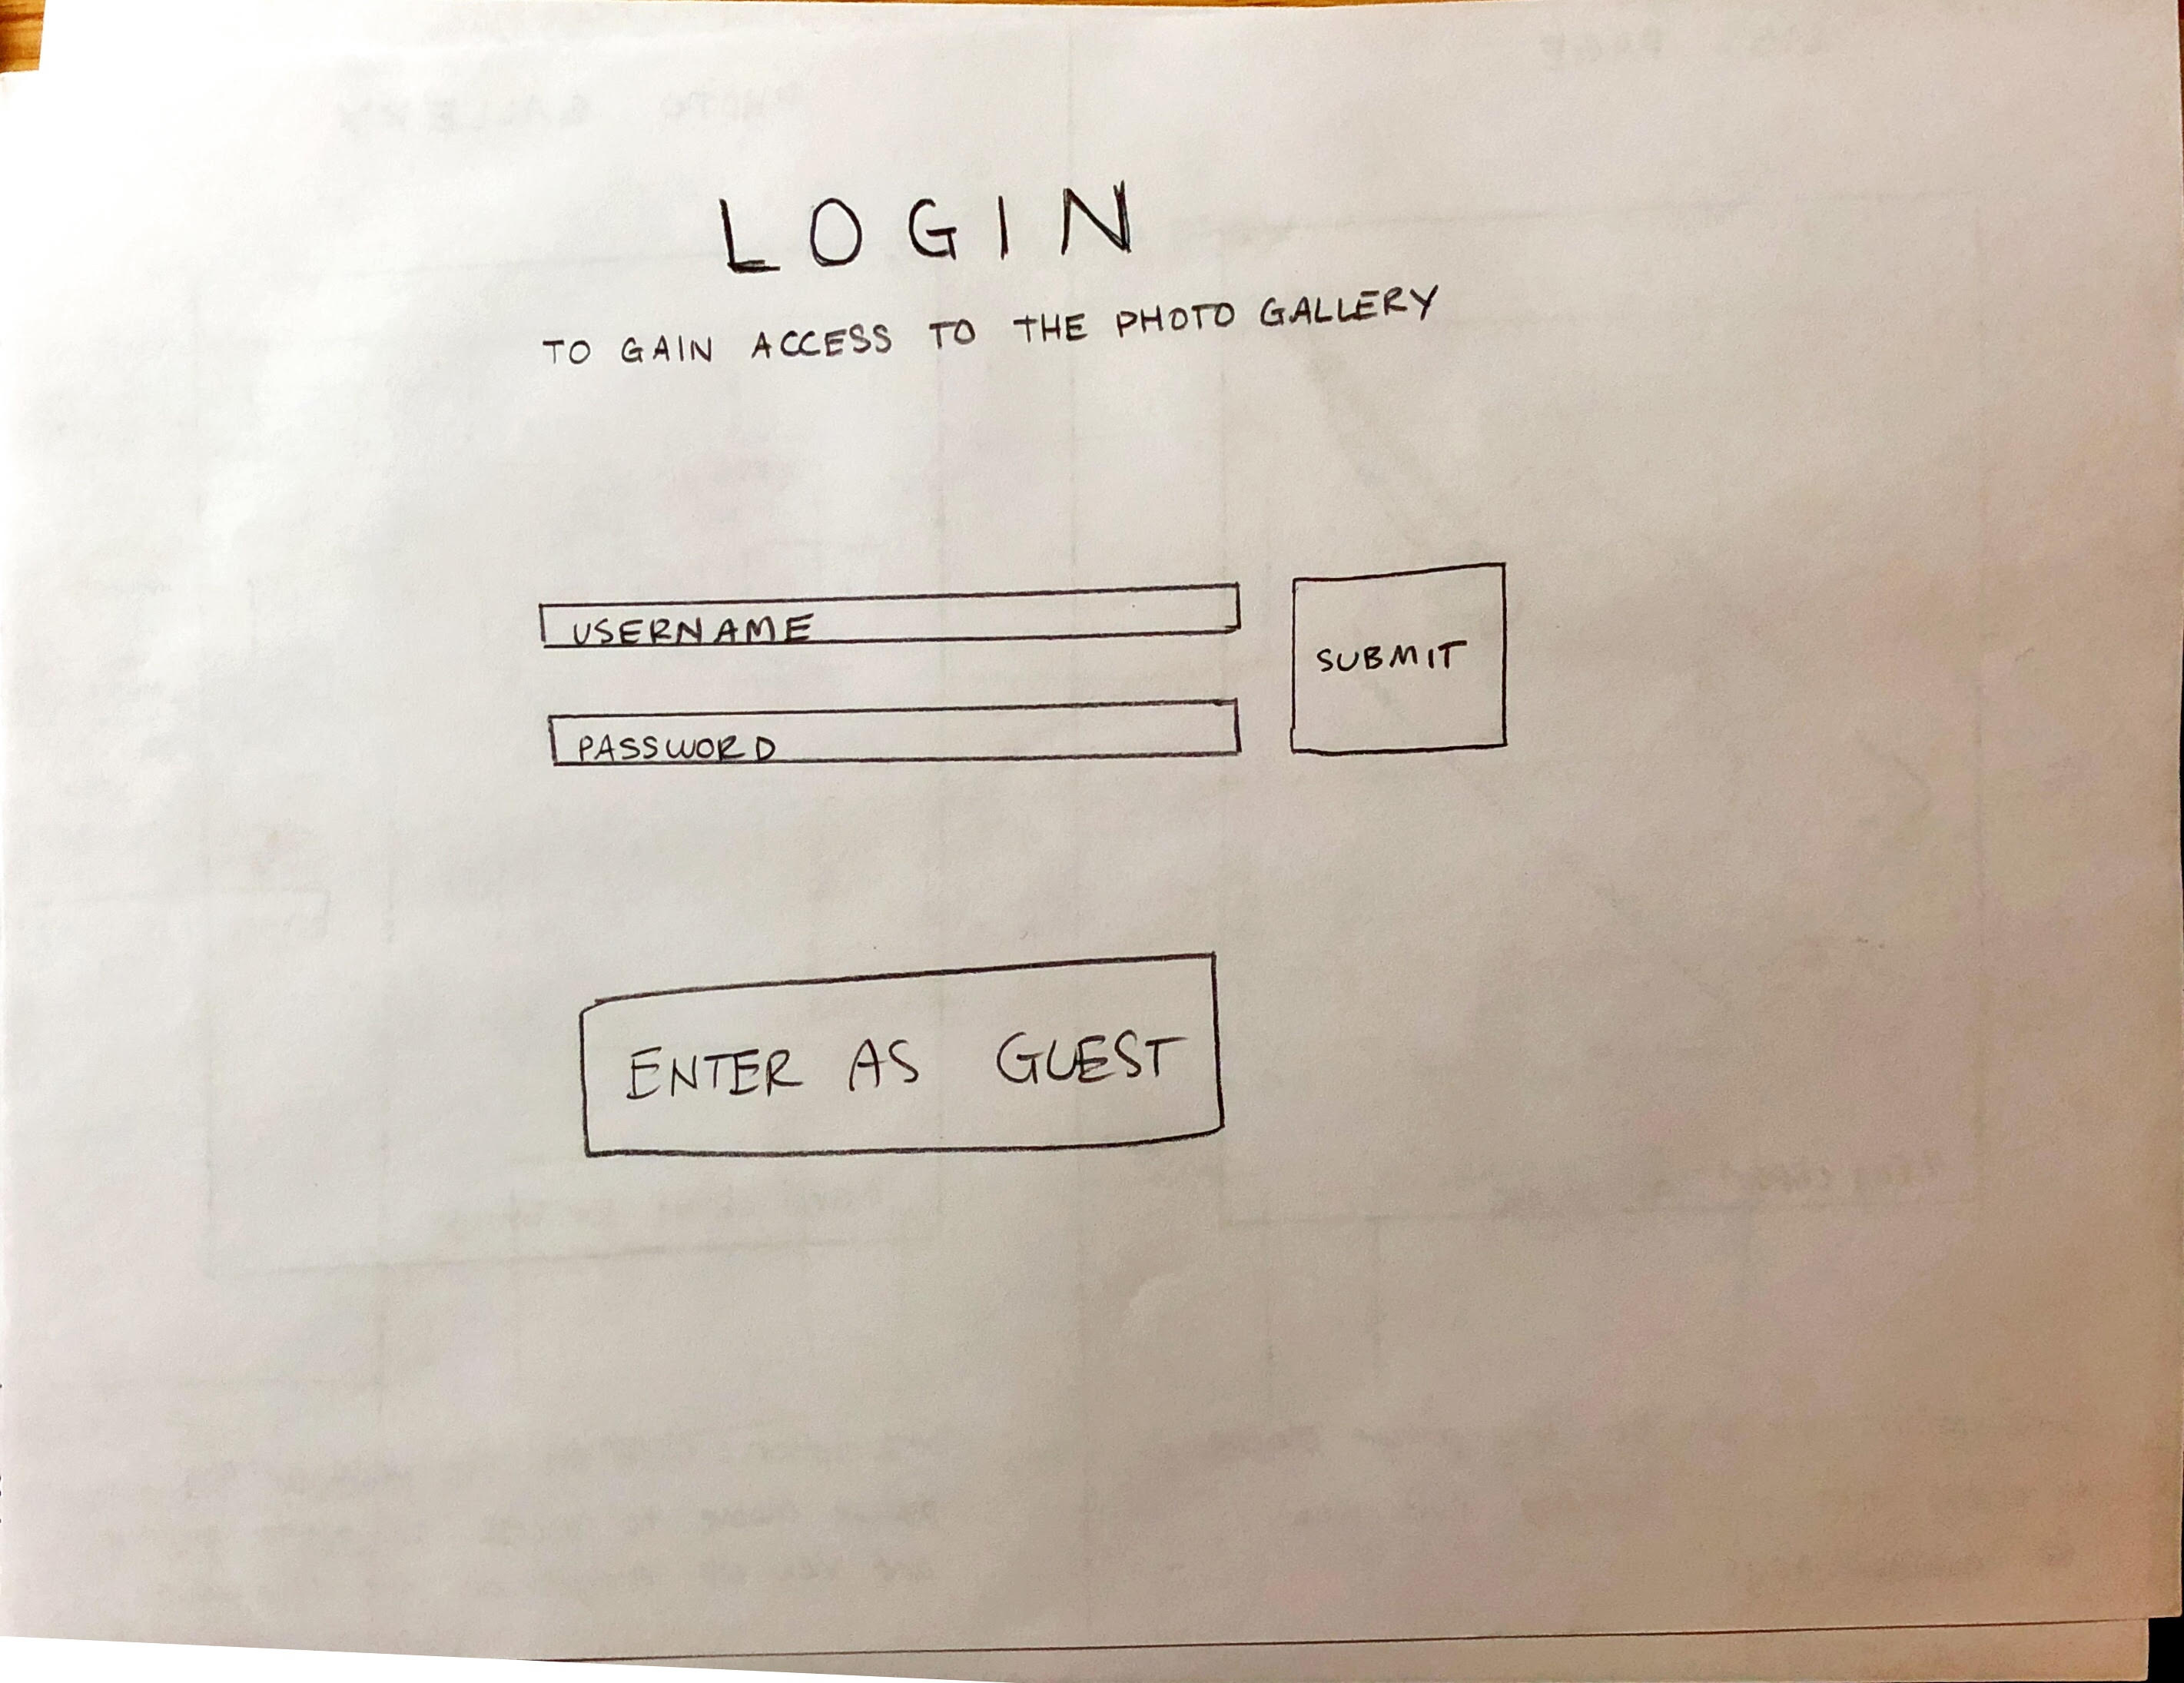 LOGIN
TO GAIN ACCESS TO THE PHOTO GALLERY
USERNAME
SUBMIT
PASSWORD
ENTER AS GUEST